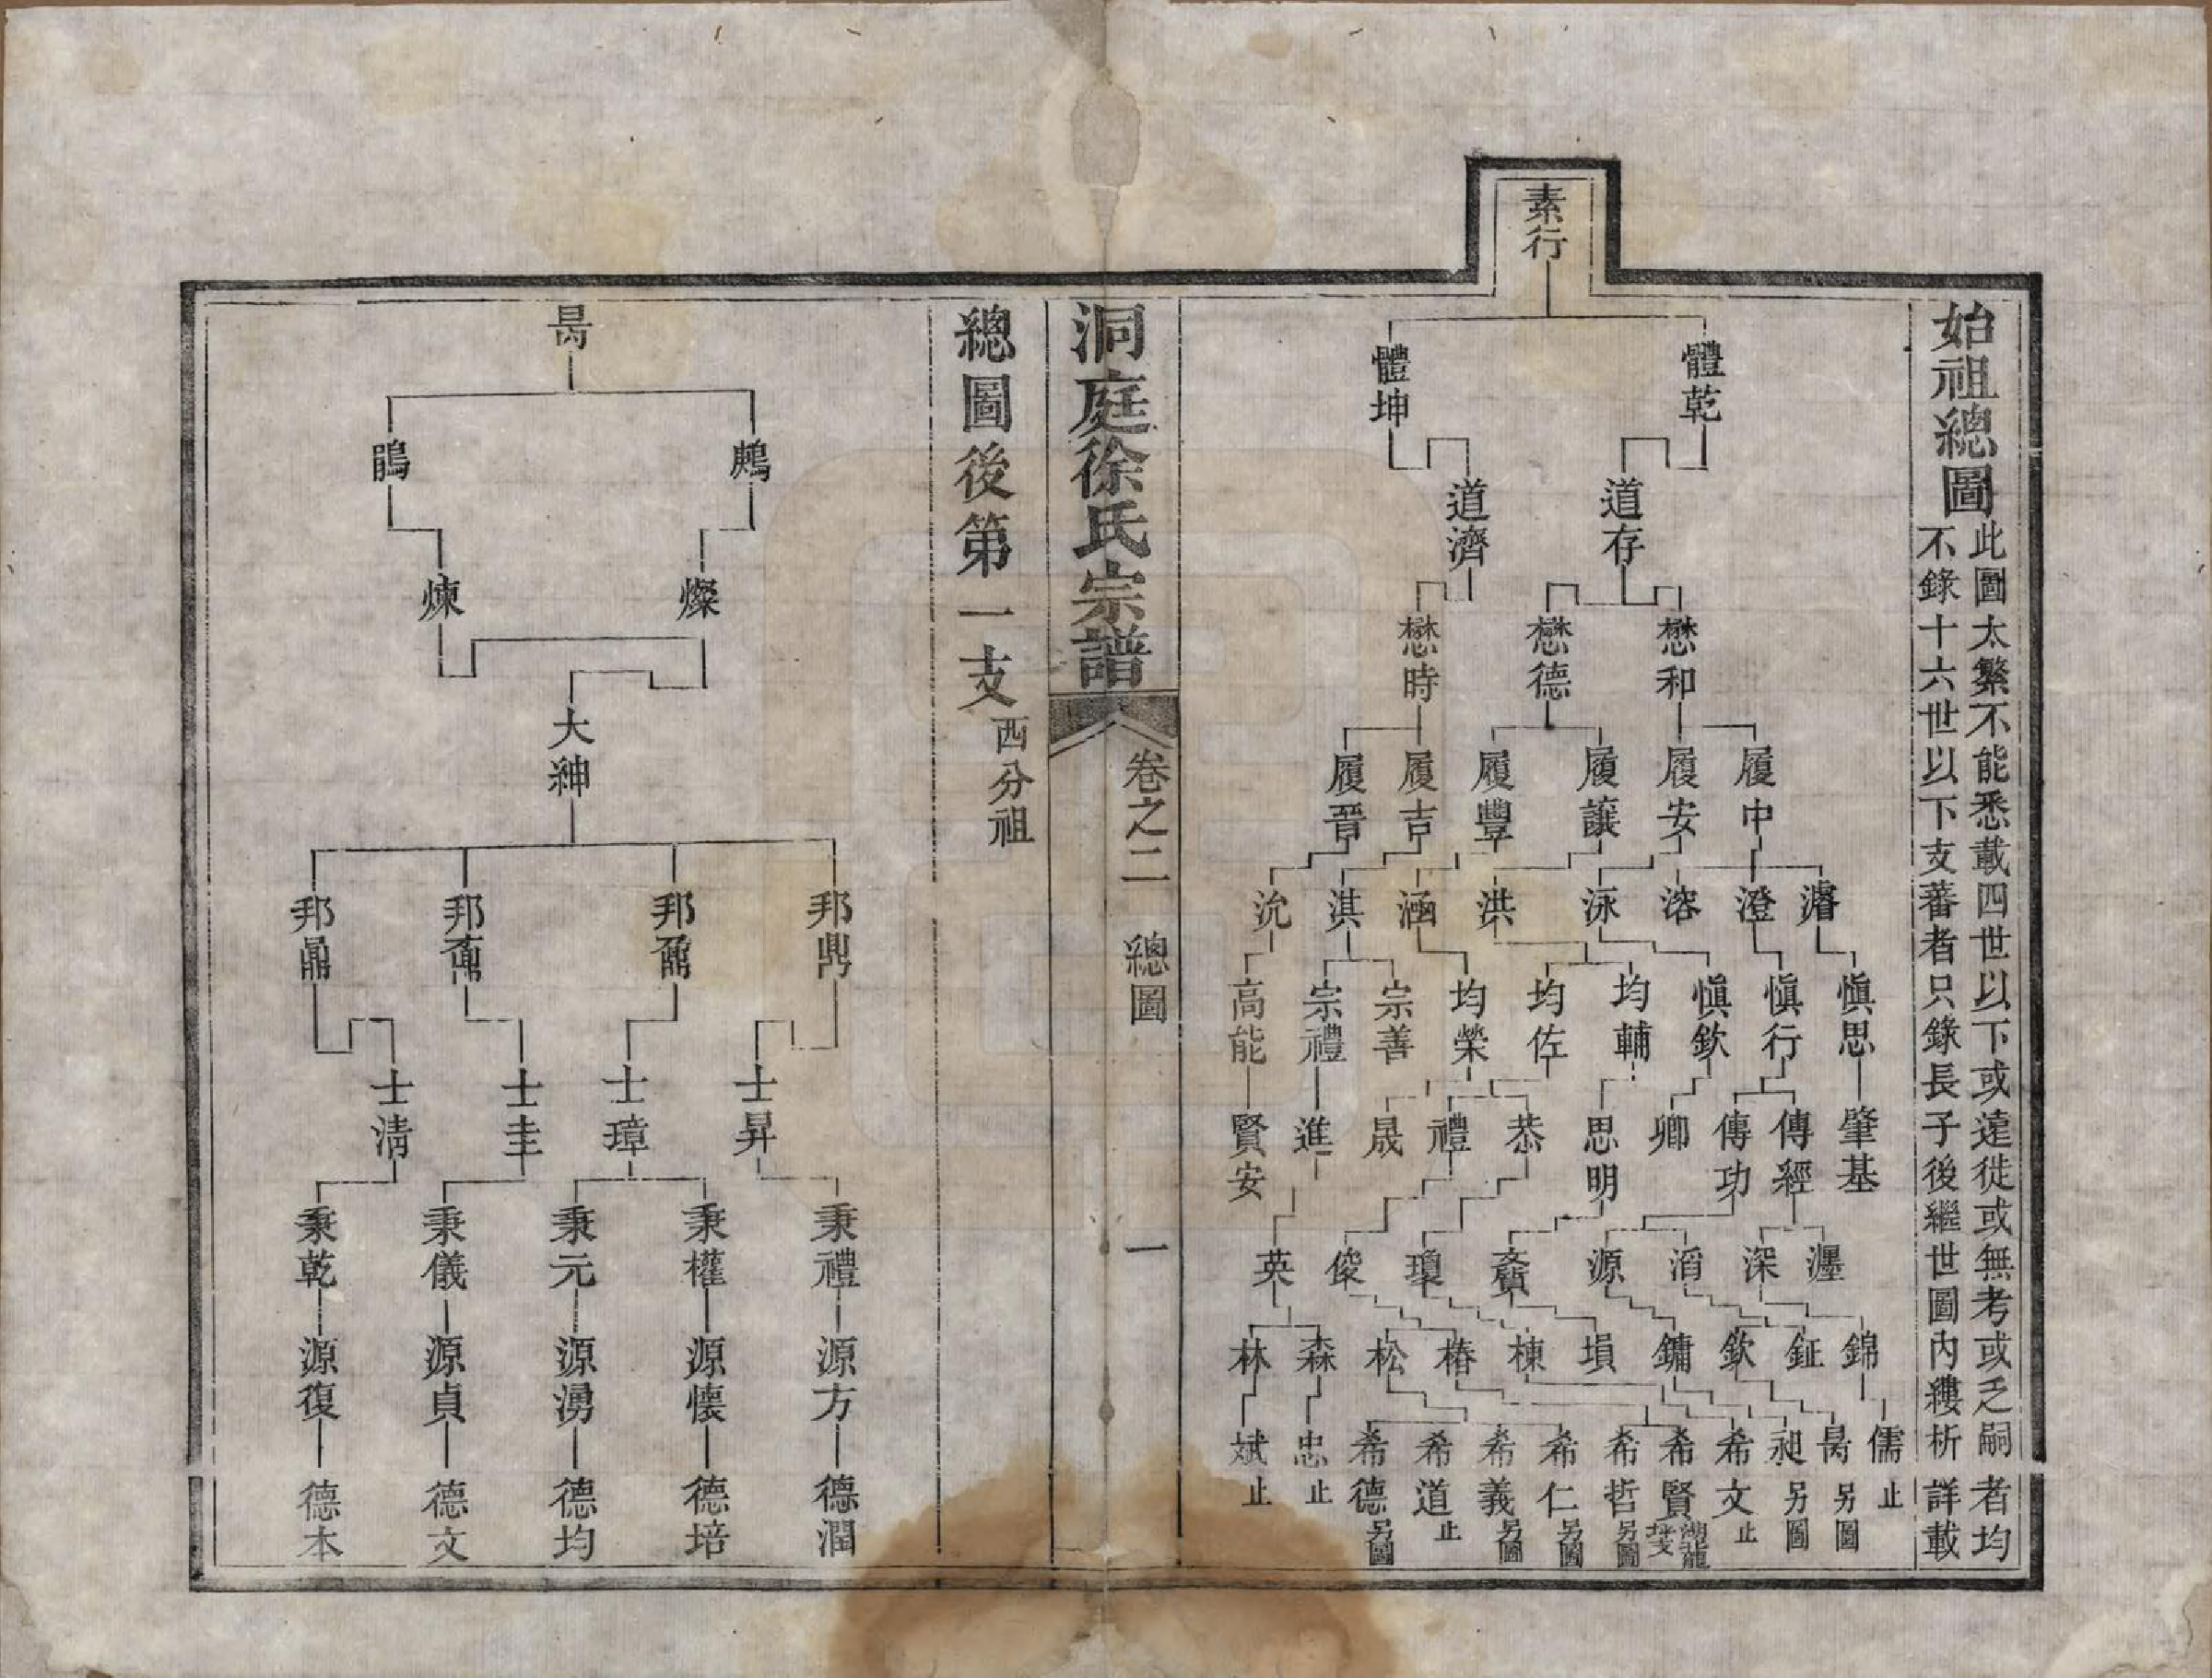 始祖總圖
此圖太繁不能悉載四世以下或遠徙或無考或乏嗣者均
不錄十六世以下支蕃者只錄長子後繼世圖內縷析詳載
素行
體乾 體坤
道存 道濟
懋和 懋德 懋時
履中 履安 履讓 履豐 履吉 履晉
濬 澄 溶 泳 洪 涵 淇 沇
愼思 愼行 愼欽 均輔 均佐 均榮 宗善 宗禮 高能
肇基 傳經 傳功 卿 思明 恭 禮 晟 進 賢安
瀍 深 滔 源 賫 瓊 俊 英
錦 鉦 欽 鏞 塤 棟 椿 松 森 林
儒止 昺另圖 昶另圖 希文止 希賢湖龍圩支 希哲另圖 希仁另圖 希義另圖 希道止 希德另圖 忠止 斌止
洞庭徐氏宗譜
卷之二 總圖 一
總圖後第一支 西分祖
昺
鵊 鵑
燦 煉
大紳
邦鼎 邦鼐 邦鼒 邦鼏
士昇 士璋 士圭 士淸
秉禮 秉權 秉元 秉儀 秉乾
源方 源懐 源湧 源貞 源復
德潤 德培 德均 德文 德本